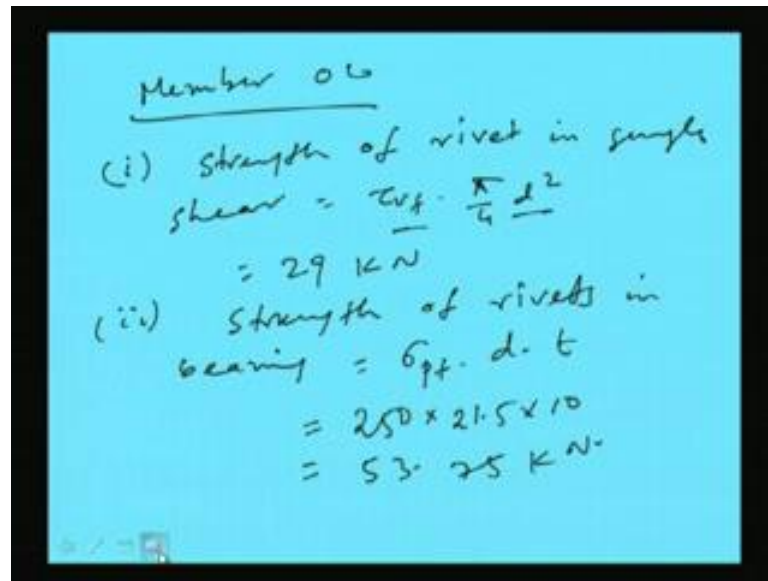 Member OG
(i) Strength of rivet in single
shear = τvf · π/4 d²
= 29 KN
(ii) Strength of rivets in
bearing = σpf · d · t
= 250 × 21.5 × 10
= 53.75 KN.